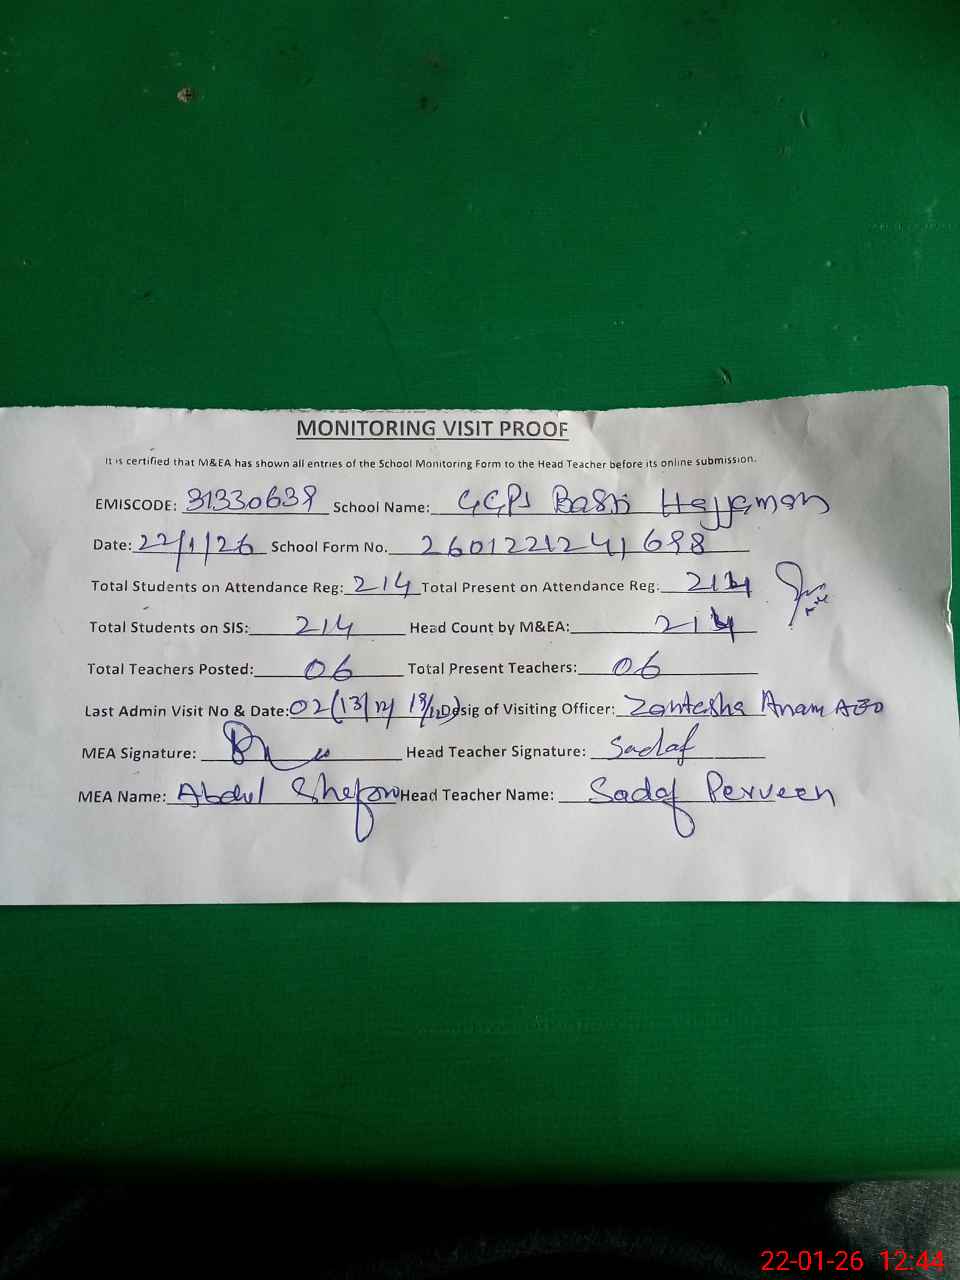 MONITORING VISIT PROOF
It is certified that M&EA has shown all entries of the School Monitoring Form to the Head Teacher before its online submission.
EMISCODE: 31330639 School Name: GGPS Basti Hajjaman
Date: 22/1/26 School Form No. 2601221241698
Total Students on Attendance Reg: 214 Total Present on Attendance Reg: 214
Total Students on SIS: 214 Head Count by M&EA: 214
Total Teachers Posted: 06 Total Present Teachers: 06
Last Admin Visit No & Date: 02 (13/12/ 18/12) Desig of Visiting Officer: Anam AEO
MEA Signature: Head Teacher Signature: Sadaf
MEA Name: Abdul Head Teacher Name: Sadaf Perveen
22-01-26 12:44